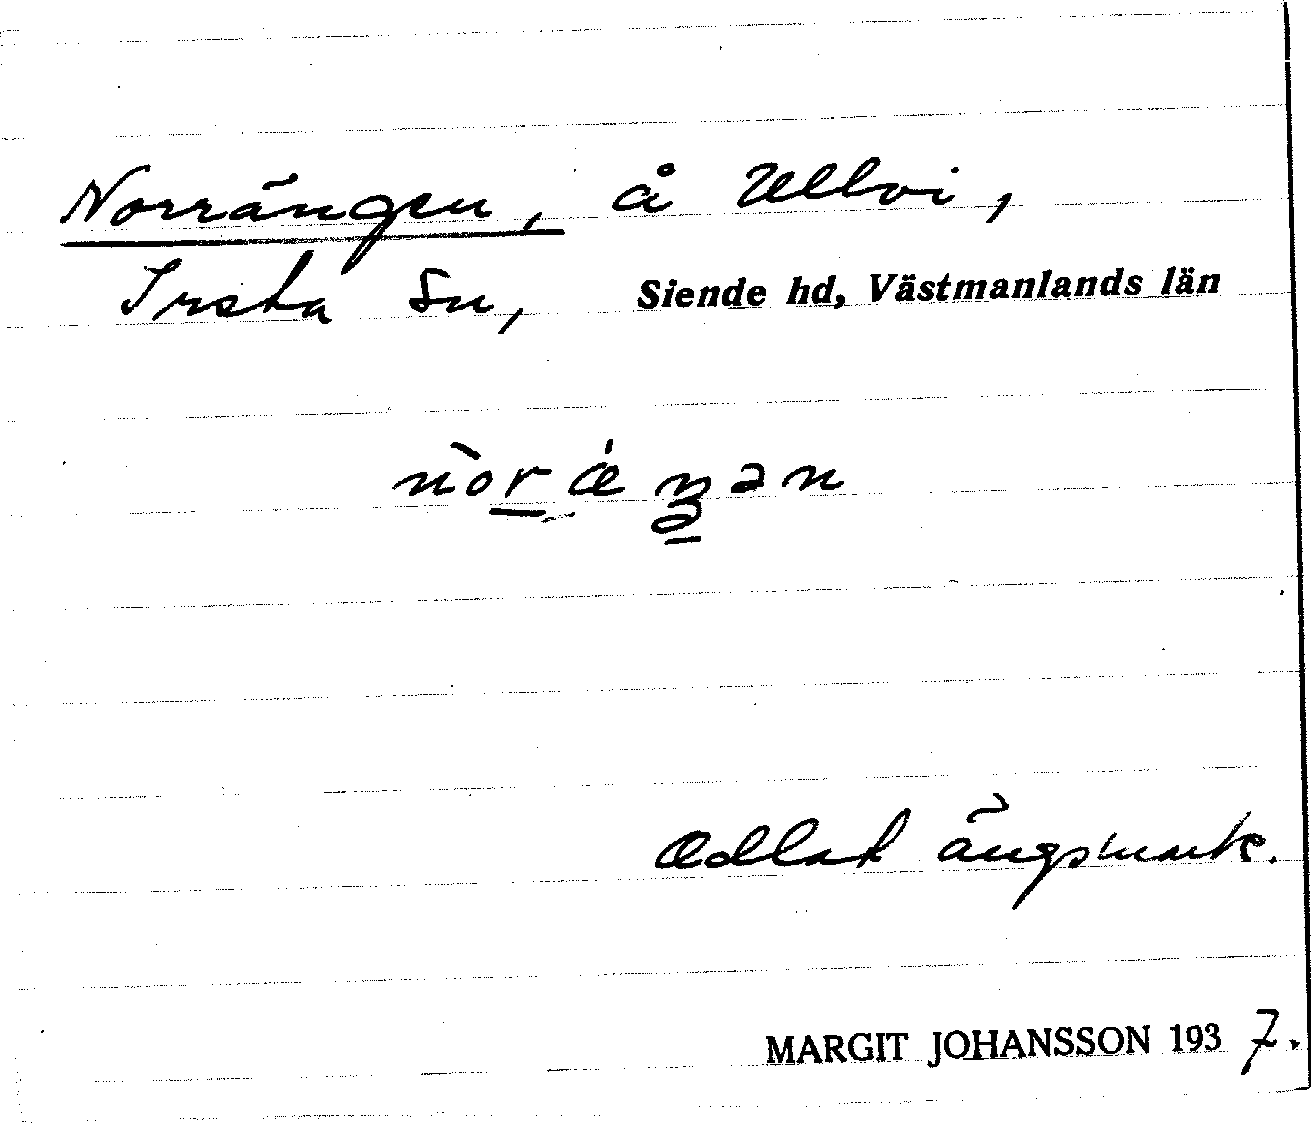 Norrängen, å Ullvi,
Irsta Sn, Siende hd, Västmanlands län
Odlad ängsmark.
MARGIT JOHANSSON 1937.